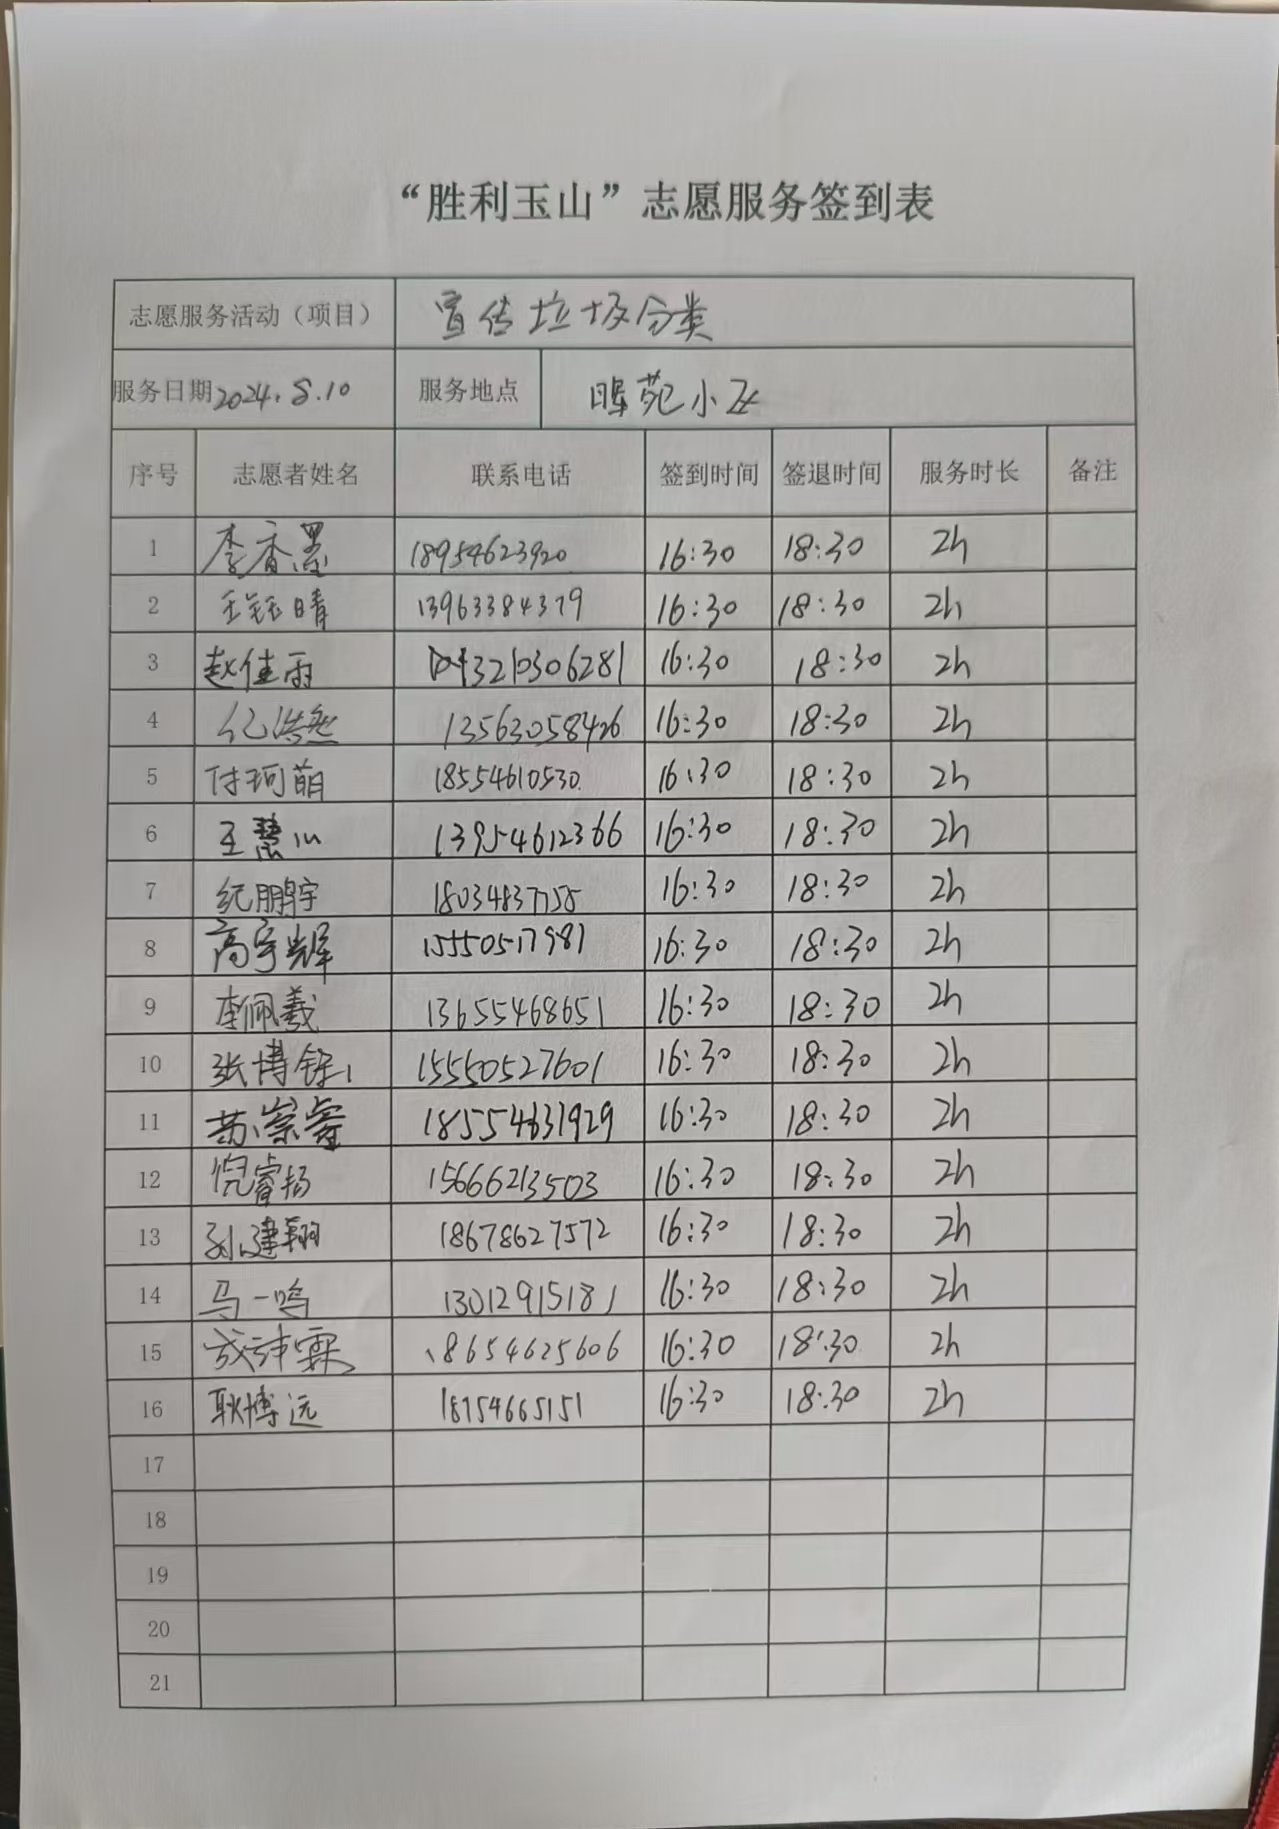 “胜利玉山”志愿服务签到表
志愿服务活动（项目） 宣传垃圾分类
服务日期 2024.8.10 服务地点 晖苑小区
序号 志愿者姓名 联系电话 签到时间 签退时间 服务时长 备注
1 李香墨 18954623920 16:30 18:30 2h
2 王钰晴 13963384379 16:30 18:30 2h
3 赵佳雨 16:30 18:30 2h
4 浩然 13563058426 16:30 18:30 2h
5 付珂萌 18554610530 16:30 18:30 2h
6 王慧心 13954612366 16:30 18:30 2h
7 纪鹏宇 16:30 18:30 2h
8 高宇辉 15550517981 16:30 18:30 2h
9 李佩羲 13655468651 16:30 18:30 2h
10 张博 15550527601 16:30 18:30 2h
11 苏崇睿 18554631929 16:30 18:30 2h
12 倪睿扬 15666213503 16:30 18:30 2h
13 孙建翔 18678627572 16:30 18:30 2h
14 马一鸣 13012915181 16:30 18:30 2h
15 霖 18654625606 16:30 18:30 2h
16 耿博远 18754665151 16:30 18:30 2h
17
18
19
20
21